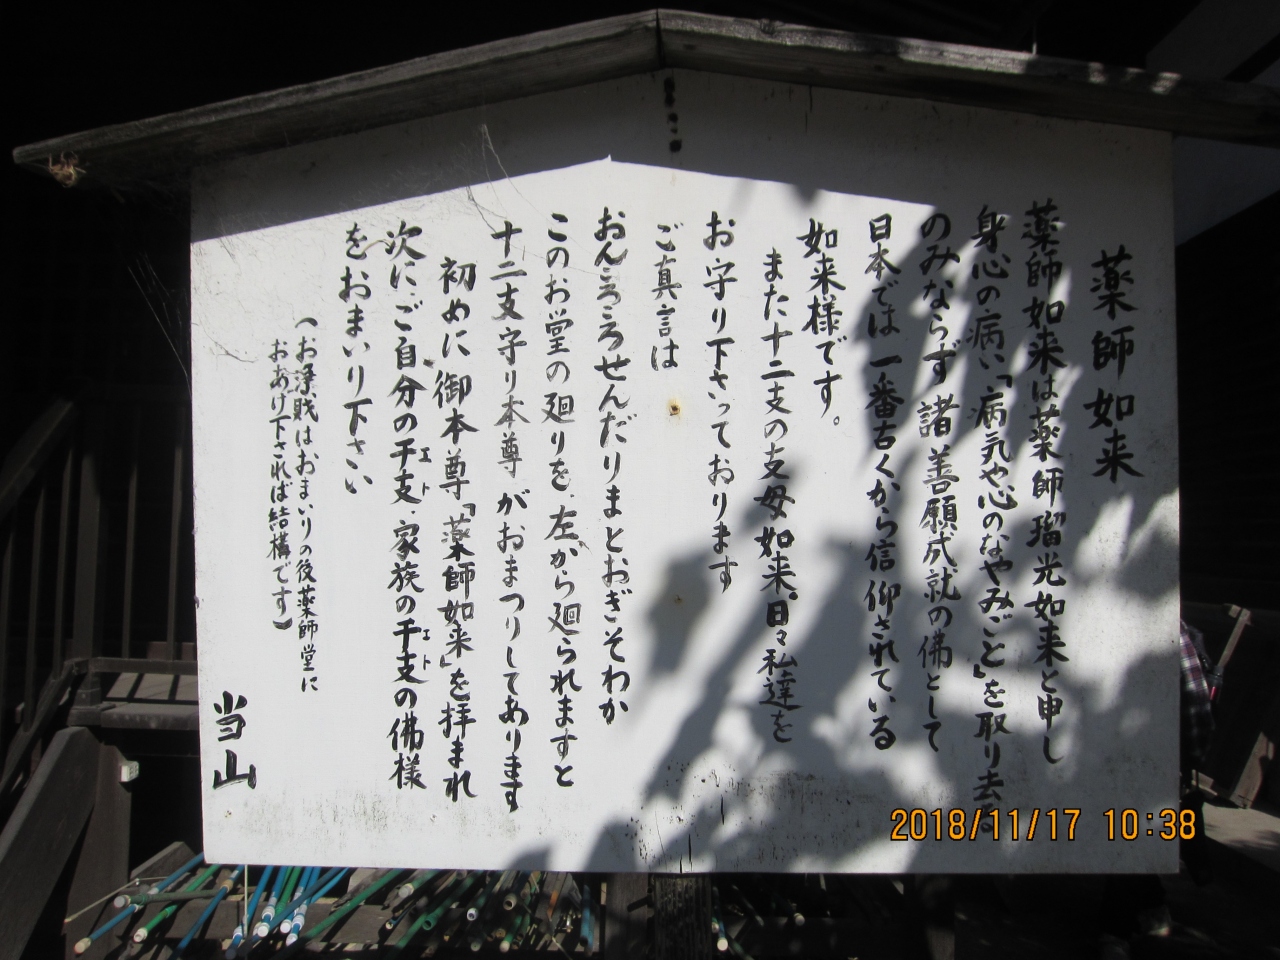 薬師如来
薬師如来は薬師瑠光如来と申し
身心の病い「病気や心のなやみごと」を取り去る
のみならず諸善願成就の佛として
日本では一番古くから信仰されている
如来様です。
また十二支の支母如来。日々私達を
お守り下さっております
ご真言は
おんころころせんだりまとおぎそわか
このお堂の廻りを、左から廻られますと
十二支守り本尊がおまつりしてあります
初めに御本尊「薬師如来」を拝まれ
次に、ご自分の干支、家族の干支の佛様
エト
エト
をおまいり下さい
（お浄賎はおまいりの後薬師堂に
おあげ下されば結構です）
当山
2018/11/17 10:38